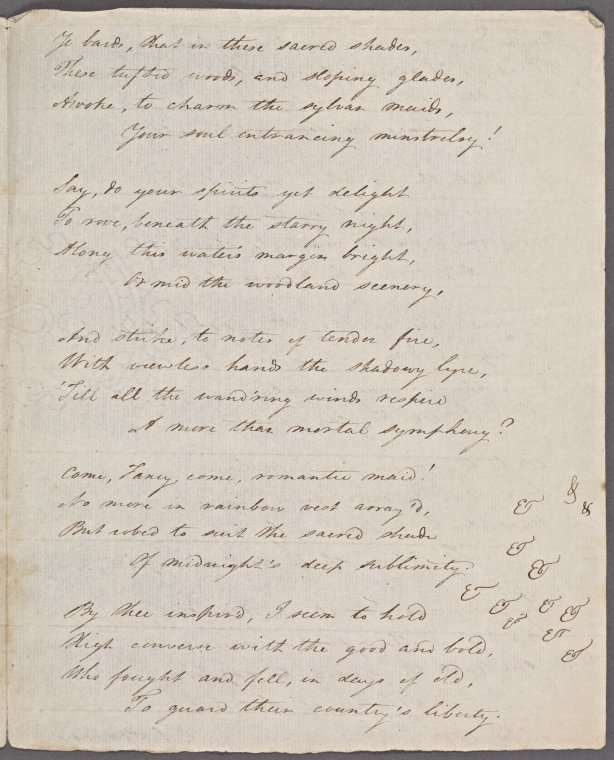 Ye bards, that in these sacred shades,
These tufted woods, and sloping glades,
Awoke, to charm the sylvan maids,
Your soul entrancing minstrelsy!
Say, do your spirits yet delight
To rove, beneath the starry night,
Along this water's margin bright,
Or mid the woodland scenery,
And strike, to notes of tender fire,
With viewless hands the shadowy lyre,
'Till all the wand'ring winds respire
A more than mortal symphony?
Come, Fancy, come, romantic maid!
No more in rainbow vest array'd,
But robed to suit the sacred shade
Of midnight's deep sublimity.
By thee inspir'd, I seem to hold
High converse with the good and bold,
Who fought and fell, in days of old,
To guard their country's liberty.